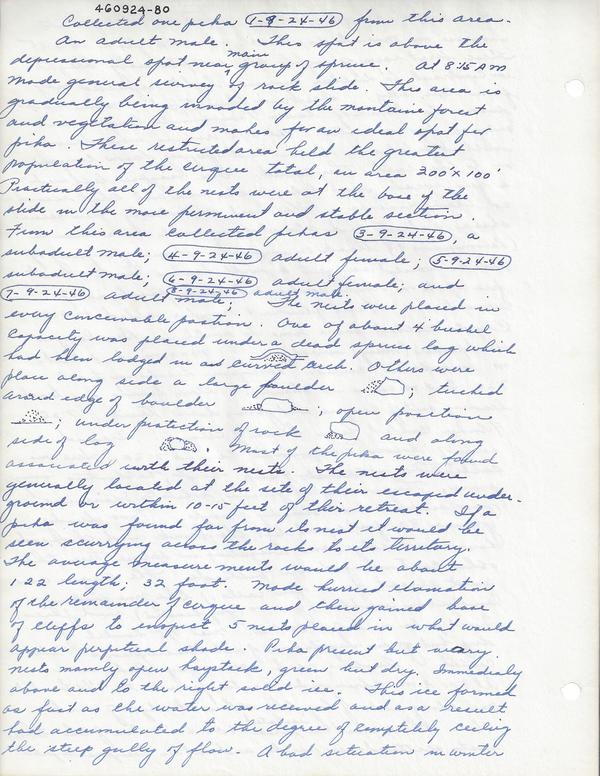 460924-80
Collected one pika 1-9-24-46 from this area.
An adult male. This spot is above the
depressional spot near main group of spruce. At 8:15 AM
made general survey of rock slide. This area is
gradually being invaded by the montaine forest
and vegetation and makes for an ideal spot for
pika. These restricted area held the greatest
population of the cirque total, an area 200' x 100'
Practically all of the nests were at the base of the
slide in the more perminent and stable section.
From this area collected pikas 3-9-24-46, a
subadult male; 4-9-24-46 adult female; 5-9-24-46
subadult male; 6-9-24-46 adult female; and
7-9-24-46 adult male; 8-9-24-46 adult male. The nests were placed in
every conceivable position. One of about 4 bushel
capacity was placed under a dead spruce log which
had been lodged in an curved arch. Others were
place along side a large boulder ; tucked
around edge of boulder ; open position
; under protection of rock and along
side of log . Most of the pika were found
associated with their nests. The nests were
generally located at the site of their escaped under-
ground or within 10-15 feet of their retreat. If a
pika was found far from its nest it would be
seen scurrying across the rocks to its territory.
The average measurements would be about
122 length; 32 foot. Made hurried
of the remainder of cirque and then gained base
of cliffs to inspect 5 nests placed in what would
appear perpetual shade. Pika present but wary.
nests mainly open haystack, green but dry. Immediatly
above and to the right solid ice. This ice formed
as fast as the water was received and as a result
had accumulated to the degree of completely
the steep gully of flow. A bad situation in winter